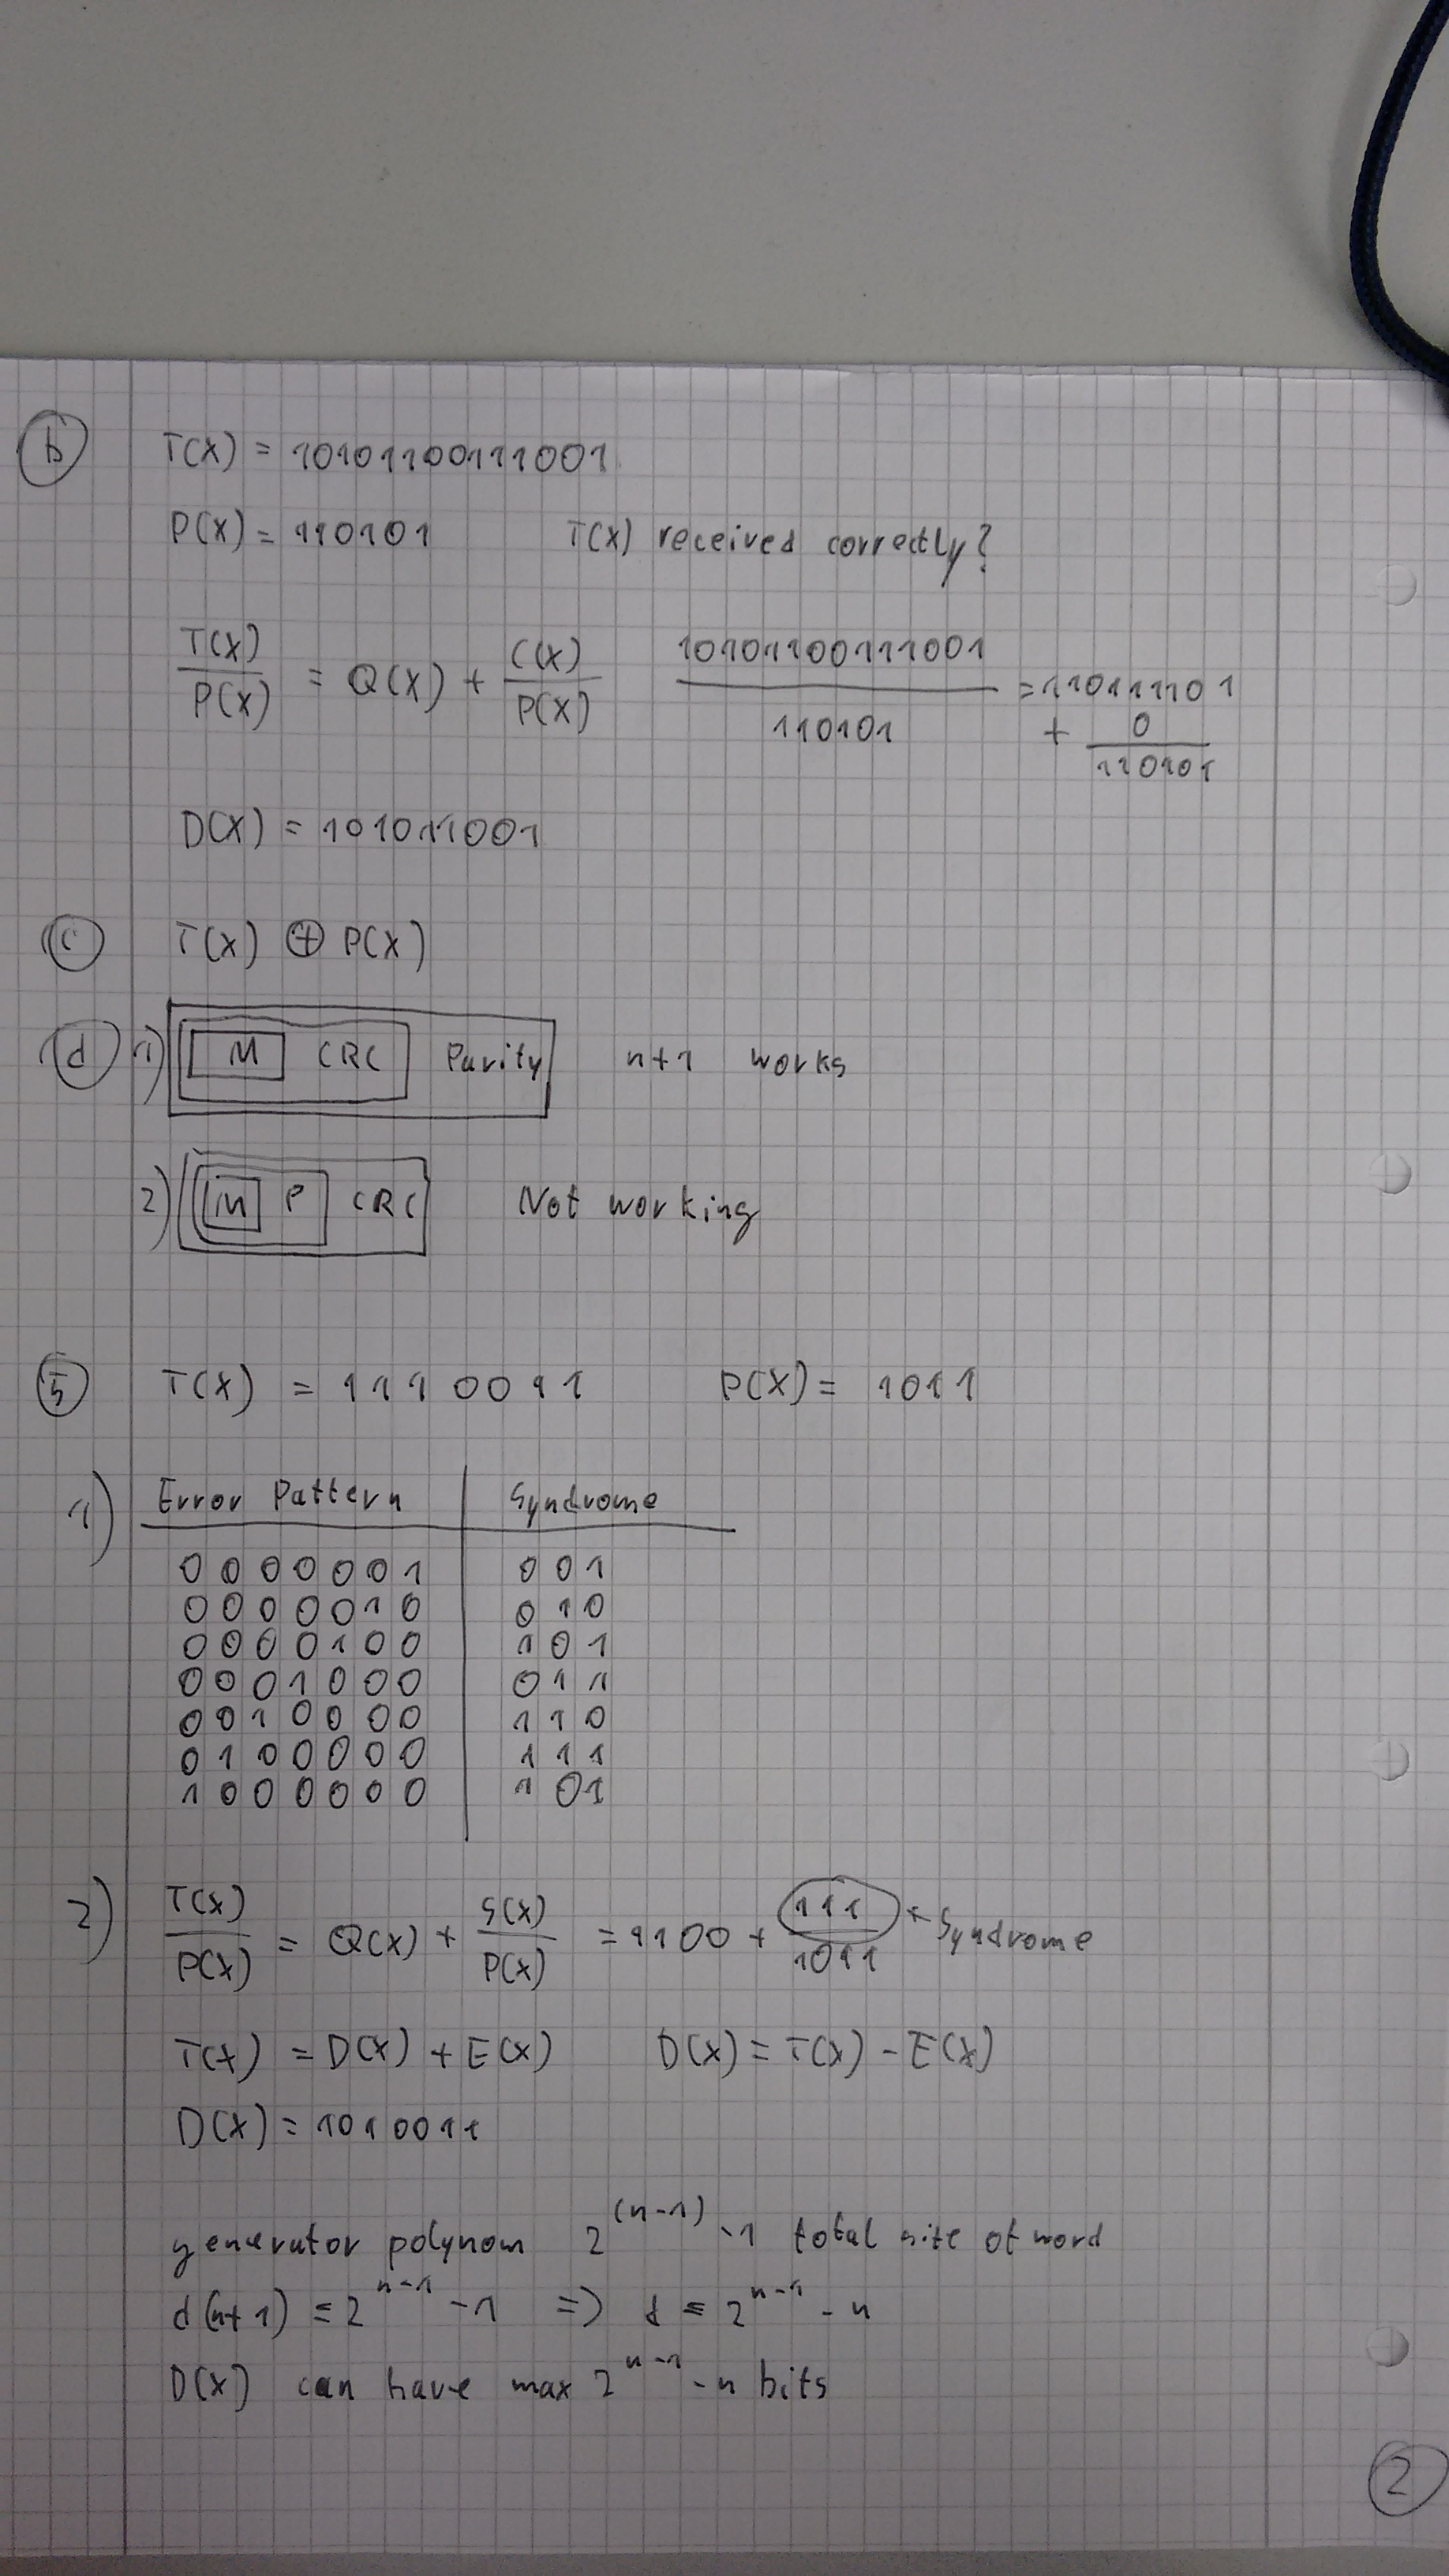 b T(X) = 10101100111001
P(X) = 110101 T(X) received correctly?
T(X)/P(X) = Q(X) + C(X)/P(X) 10101100111001/110101 = 110111101 + 0/110101
D(X) = 101011001
c T(X) ⊕ P(X)
d 1) M CRC Parity n+1 works
2) M P CRC Not working
5 T(X) = 1110011 P(X) = 1011
1) Error Pattern Syndrome
0000001 001
0000010 010
0000100 101
0001000 011
0010000 110
0100000 111
1000000 101
2) T(X)/P(X) = Q(X) + S(X)/P(X) = 1100 + 111/1011 ← Syndrome
T(X) = D(X) + E(X) D(X) = T(X) - E(X)
D(X) = 1010011
generator polynom 2^(n-1) -1 total size of word
d(n+1) = 2^n-1 -1 => d = 2^n-1 - n
D(X) can have max 2^n-1 - n bits
2